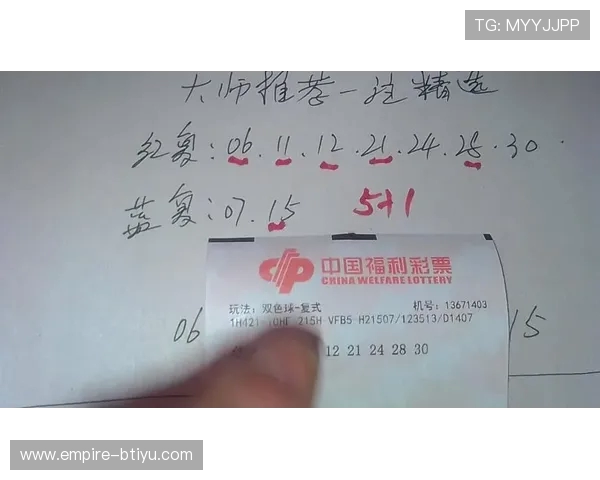 TG: MYYJJPP
大师推荐一注精选
红复:06.11.12.21.24.28.30.
蓝复:07.15 5+1
中国福利彩票
CHINA WELFARE LOTTERY
玩法:双色球-复式 机号:13671403
215H VFB5 H21507/123513/D1407
06 12 21 24 28 30 15
www.empire-btiyu.com